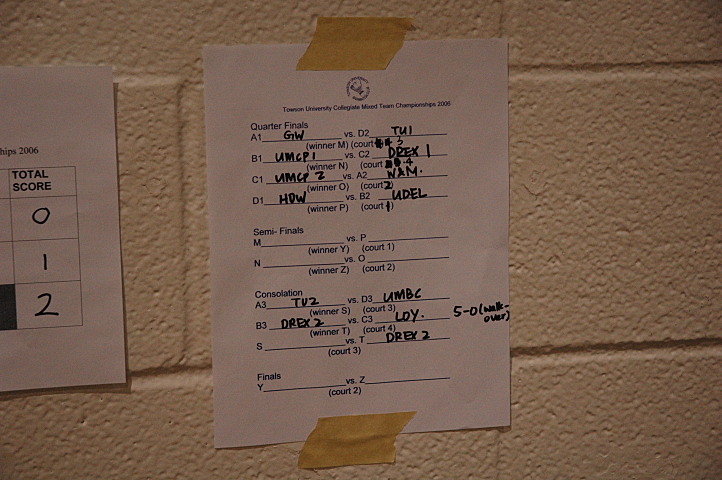 hips 2006
TOTAL
SCORE
0
1
2
Towson University Collegiate Mixed Team Championships 2006
Quarter Finals
A1 GW vs. D2 TU1
(winner M) (court 3
B1 UMCP 1 vs. C2 DREX 1
(winner N) (court 4
C1 UMCP 2 vs. A2
(winner O) (court 2)
D1 HOW vs. B2 UDEL
(winner P) (court 1)
Semi- Finals
M vs. P
(winner Y) (court 1)
N vs. O
(winner Z) (court 2)
Consolation
A3 TU2 vs. D3 UMBC
(winner S) (court 3)
B3 DREX 2 vs. C3 LOY. 5-0 (walk-
over)
(winner T) (court 4)
S vs. T DREX 2
(court 3)
Finals
Y vs. Z
(court 2)